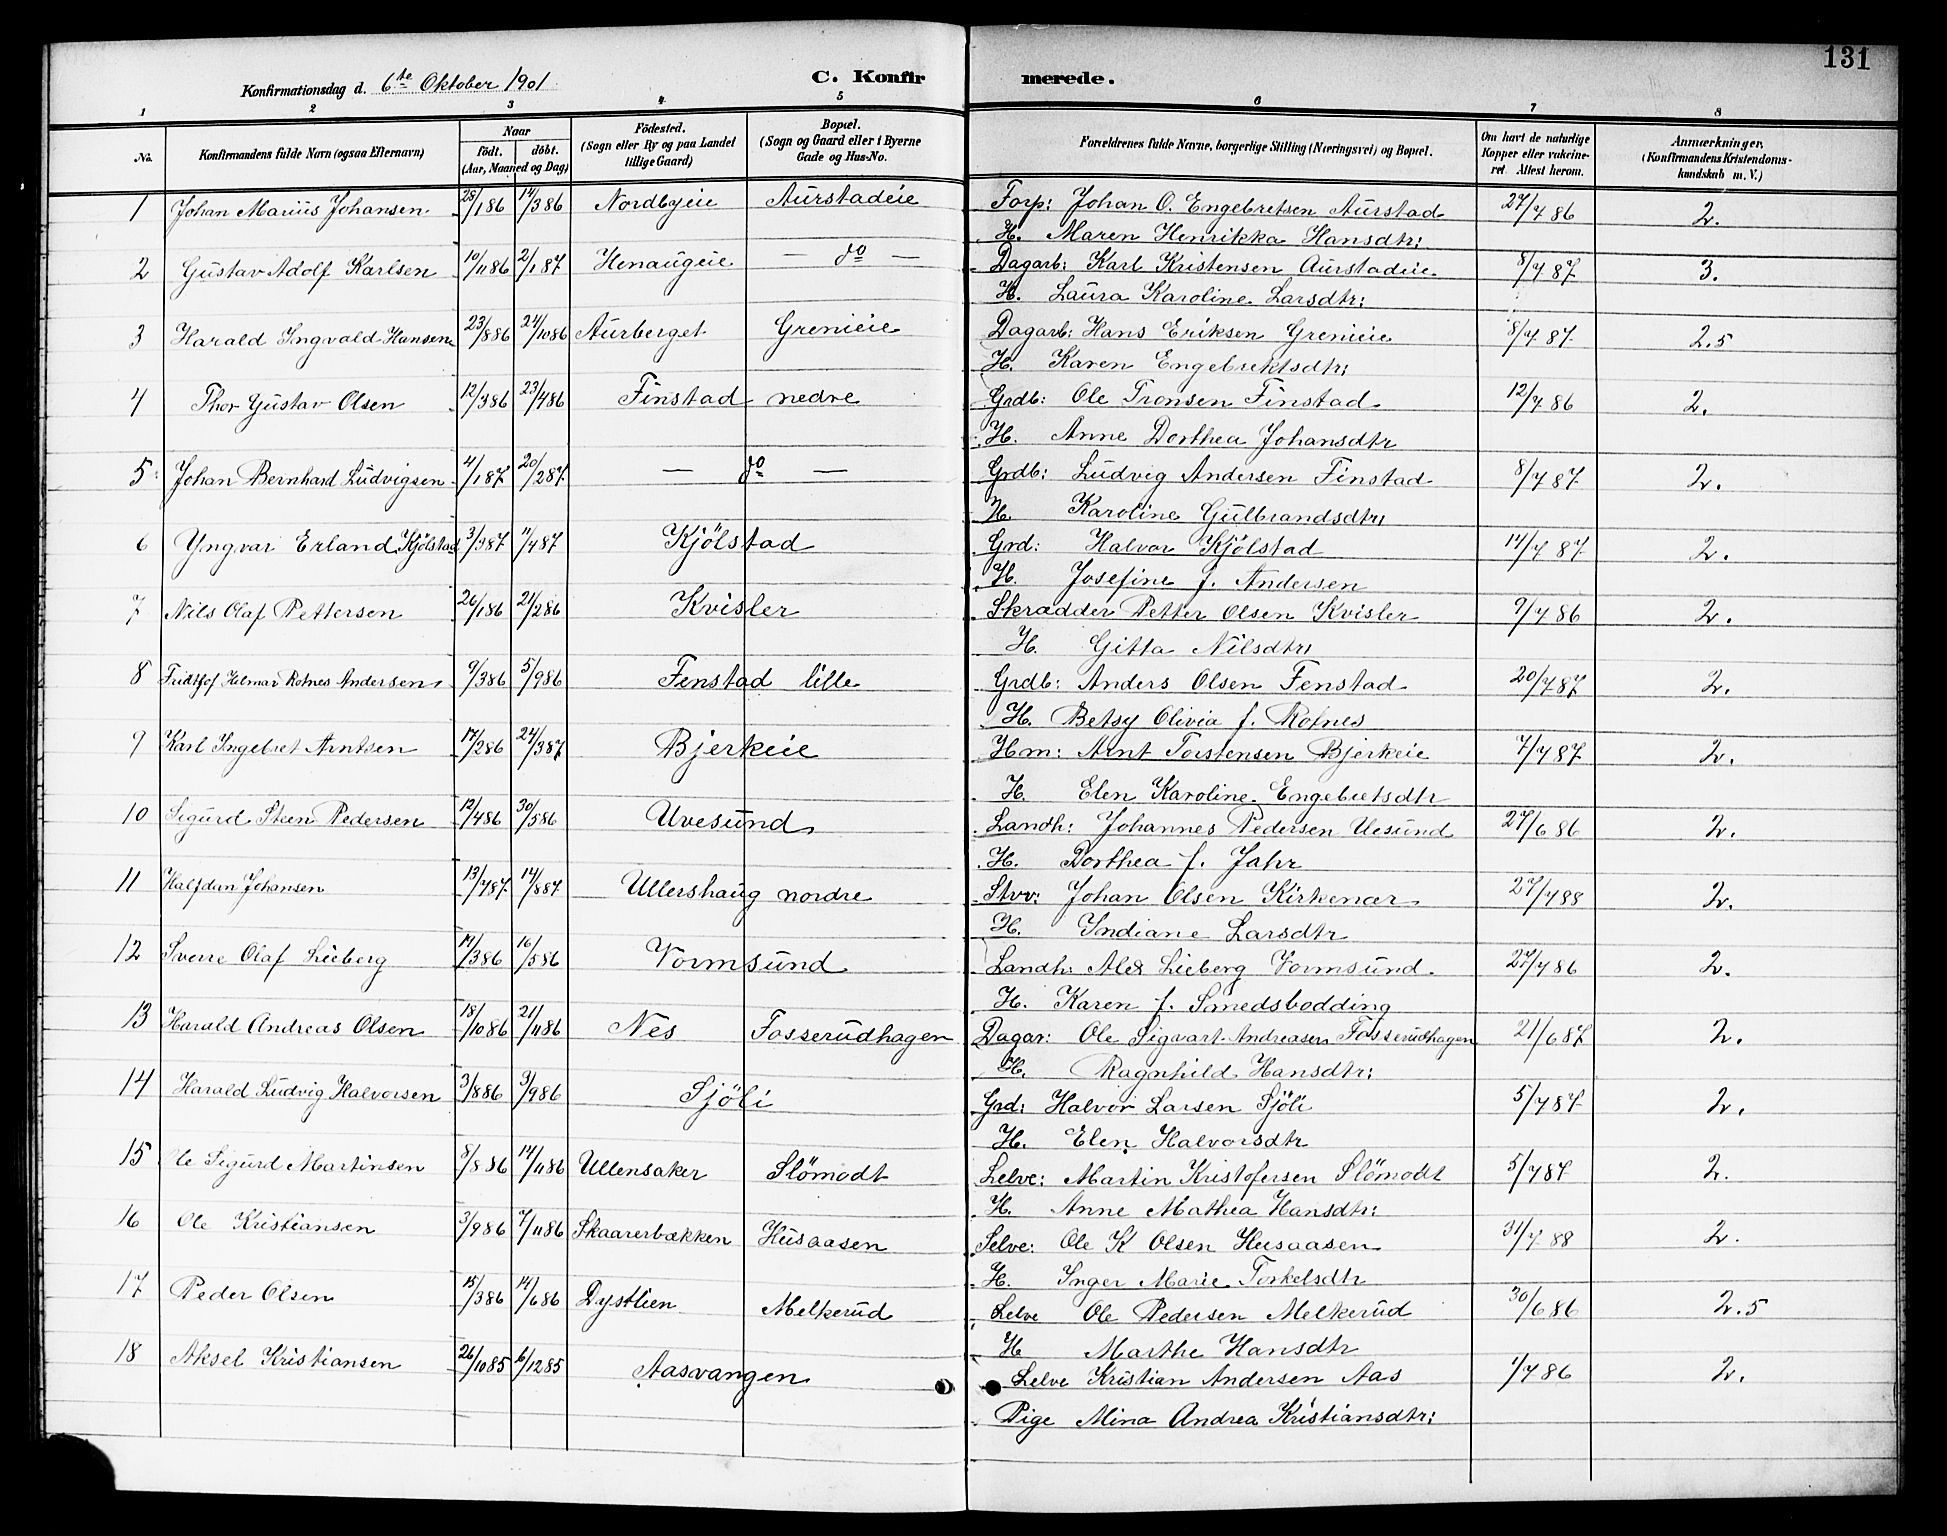 131
Konfirmationsdag d. 6te Oktober 1901 C. Konfirmerede.
1 2 3 4 5 6 7 8
No. Konfirmandens fulde Navn (ogsaa Efternavn) Naar födt. döbt. (Aar, Maaned og Dag) Födested. (Sogn eller By og paa Landet tillige Gaard) Bopæl. (Sogn og Gaard eller i Byerne Gade og Hus-No. Forældrenes fulde Navne, borgerlige Stilling (Næringsvei) og Bopæl. Om havt de naturlige Kopper eller vakcineret. Attest herom. Anmærkninger. (Konfirmandens Kristendomskundskab m. V.)
1 Johan Marius Johansen 28/1 86 14/3 86 Nordbyeie Aurstadeie Forp: Johan O. Engebretsen Aurstad 27/7 86 2.
H. Maren Henrikka Hansdtr:
2 Gustav Adolf Karlsen 10/11 86 2/1 87 Henaugeie — do — Dagarb: Karl Kristensen Aurstadeie 8/7 87 3.
H. Laura Karoline Larsdtr:
3 Harald Ingvald Hansen 23/8 86 24/10 86 Aurberget Grenieie Dagarb: Hans Eriksen Grenieie 8/7 87 2.5
H. Karen Engebrektsdtr:
4 Thor Gustav Olsen 12/3 86 23/4 86 Finstad nedre Grdb: Ole Tronsen Finstad 12/7 86 2.
H. Anne Dorthea Johansdtr
5 Johan Bernhard Ludvigsen 4/1 87 20/2 87 — do — Grdb: Ludvig Andersen Finstad 8/7 87 2.
H. Karoline Gulbrandsdtr:
6 Yngvar Erland Kjölstad 3/3 87 11/4 87 Kjölstad Grd: Halvor Kjölstad 14/7 87 2.
H. Josefine f. Andersen
7 Nils Olaf Pettersen 26/1 86 21/2 86 Kvisler Skrædder Petter Olsen Kvisler 9/7 86 2.
H. Gitta Nilsdtr:
8 Fridtjof Hilmar Rotnes Andersen 9/3 86 5/9 86 Fenstad lille Grdb: Anders Olsen Fenstad 20/7 87 2.
H. Betsy Olivia f. Rotnes
9 Karl Ingebret Arntsen 17/2 86 24/3 87 Bjerkeie Hm: Arnt Torstensen Bjerkeie 7/7 87 2.
H. Elen Karoline Engebretsdtr
10 Sigurd Steen Pedersen 12/4 86 30/5 86 Uvesund Landh: Johannes Pedersen Uesund 27/6 86 2.
H. Dorthea f. Jahr
11 Halfdan Johansen 13/7 87 14/8 87 Ullershaug nordre Stvv: Johan Olsen Kirkenær 27/7 88 2.
H. Indiane Larsdtr
12 Sverre Olaf Lieberg 19/3 86 16/5 86 Vormsund Landh: Alex Lieberg Vormsund 27/7 86 2.
H. Karen f. Smedsbodding
13 Harald Andreas Olsen 18/10 86 21/11 86 Nes Fosserudhagen Dagar: Ole Sigvart Andreasen Fosserudhagen 21/6 87 2.
H. Ragnhild Hansdtr:
14 Harald Ludvig Halvorsen 3/8 86 3/9 86 Sjöli Grd: Halvor Larsen Sjöli 5/7 87 2.
H. Elen Halvorsdtr
15 Ole Sigurd Martinsen 8/8 86 14/11 86 Ullensaker Slömodt Lelve: Martin Kristofersen Slömodt 5/7 87 2.
H. Anne Mathea Hansdtr:
16 Ole Kristiansen 3/9 86 7/11 86 Skaarerbækken Husaasen Selve: Ole K Olsen Husaasen 31/7 88 2.
H. Inger Marie Torkelsdtr
17 Peder Olsen 15/3 86 14/6 86 Dystlien Melkerud Lelve Ole Pedersen Melkerud 30/6 86 2.5
H Marthe Hansdtr
18 Aksel Kristiansen 26/10 85 6/12 85 Aasvangen Lelve Kristian Andersen Aas 1/7 86 2.
Pige Mina Andrea Kristiansdtr: